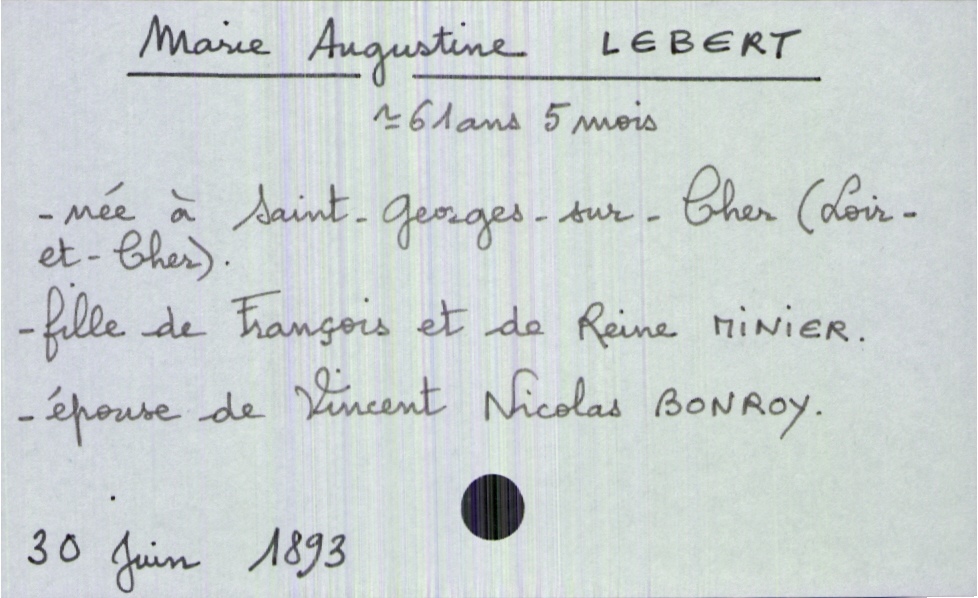 Marie Augustine LEBERT
≃ 61 ans 5 mois
- née à Saint-Georges-sur-Cher (Loir-
et-Cher).
- fille de François et de Reine MINIER.
- épouse de Vincent Nicolas BONROY.
30 Juin 1893